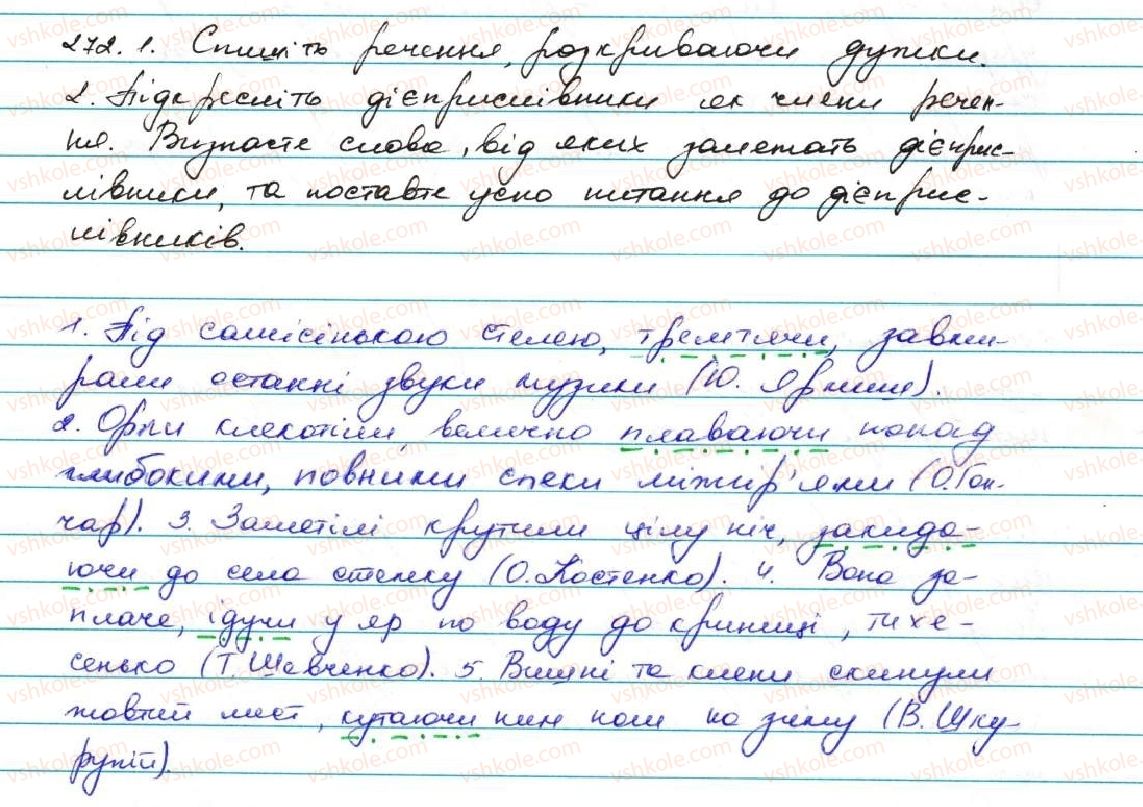 272. 1. Спишіть речення, розкриваючи дужки.
2. Підкресліть дієприслівники як члени речен-
ня. Визначте слова, від яких залежать дієприс-
лівники, та поставте усно питання до дієприс-
лівників.
1. Під самісінькою стелею, тремтячи, завми-
рали останні звуки музики (Ю. Ярмиш).
2. Орли клекотіли, велично плаваючи понад
глибокими, повними спеки міжгір'ями (О. Гон-
чар). 3. Заметілі крутили цілу ніч, закида-
ючи до села стежку (О. Костенко). 4. Вона за-
плаче, ідучи у яр по воду до криниці, тихе-
сенько (Т. Шевченко). 5. Вишні та клени скинули
жовтий лист, кутаючи ним ноги на зиму (В. Шку-
рупій).